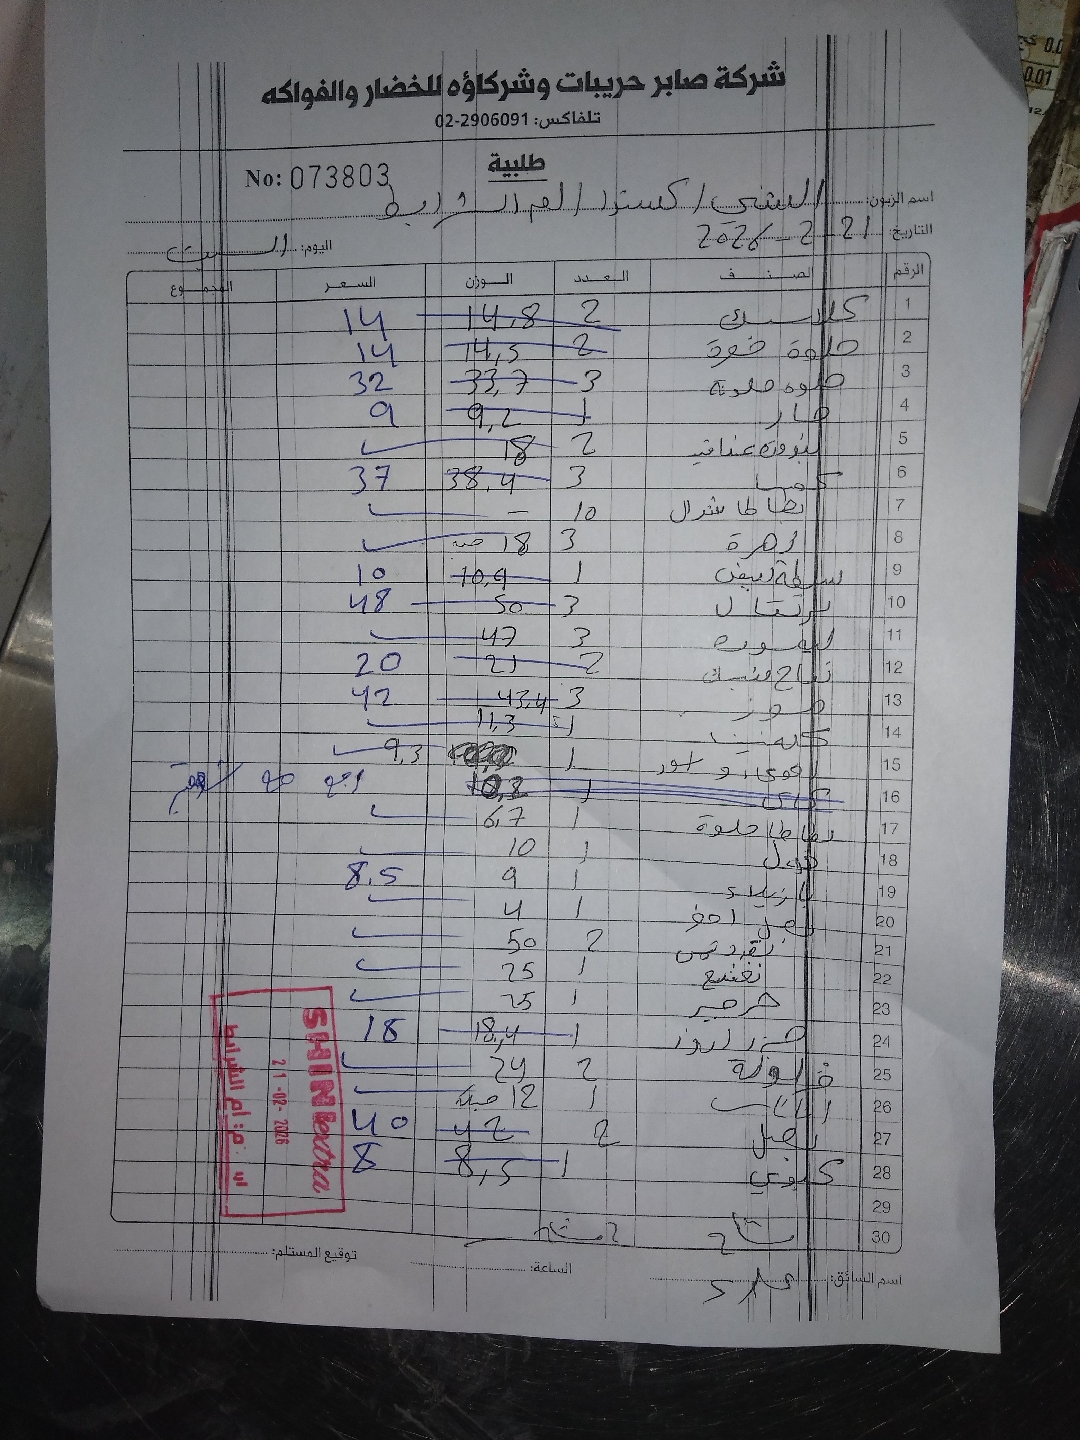 شركة صابر حريبات وشركاؤه للخضار والفواكه
تلفاكس: 02-2906091
طلبية
No: 073803
اسم الزبون: الشني / كسترا / ام الشرايط
التاريخ: 21-2-2026
اليوم: السبت
الرقم الصنف العدد الوزن السعر المجموع
1 كلاسيك 2 14,8 14
2 حلوة 2 14,5 14
3 حلوه ملونه 3 33,7 32
4 حار 1 9,2 9
5 بندورة عناقيد 2 18
6 كوسا 3 38,4 37
7 بطاطا شوال 10 -
8 زهرة 3 18 حبة
9 1 10,9 10
10 برتقال 3 50 48
11 ليمون 3 47
12 تفاح 2 21 20
13 موز 3 43,4 42
14 كلمنتينا 1 11,3
15 1 9,3
16 1 10,2
17 بطاطا حلوة 1 6,7
18 فجل 1 10
19 بازيلاء 1 9 8,5
20 بصل اخضر 1 4
21 بقدونس 2 50
22 نعنع 1 25
23 جرجير 1 25
24 1 18,4 18
25 فراولة 2 24
26 اناناس 1 12 حبة
27 بصل 2 42 40
28 كيوي 1 8,5 8
29
30
اسم السائق:
الساعة:
توقيع المستلم:
SHINI extra
21-02-2026
ام الشرايط